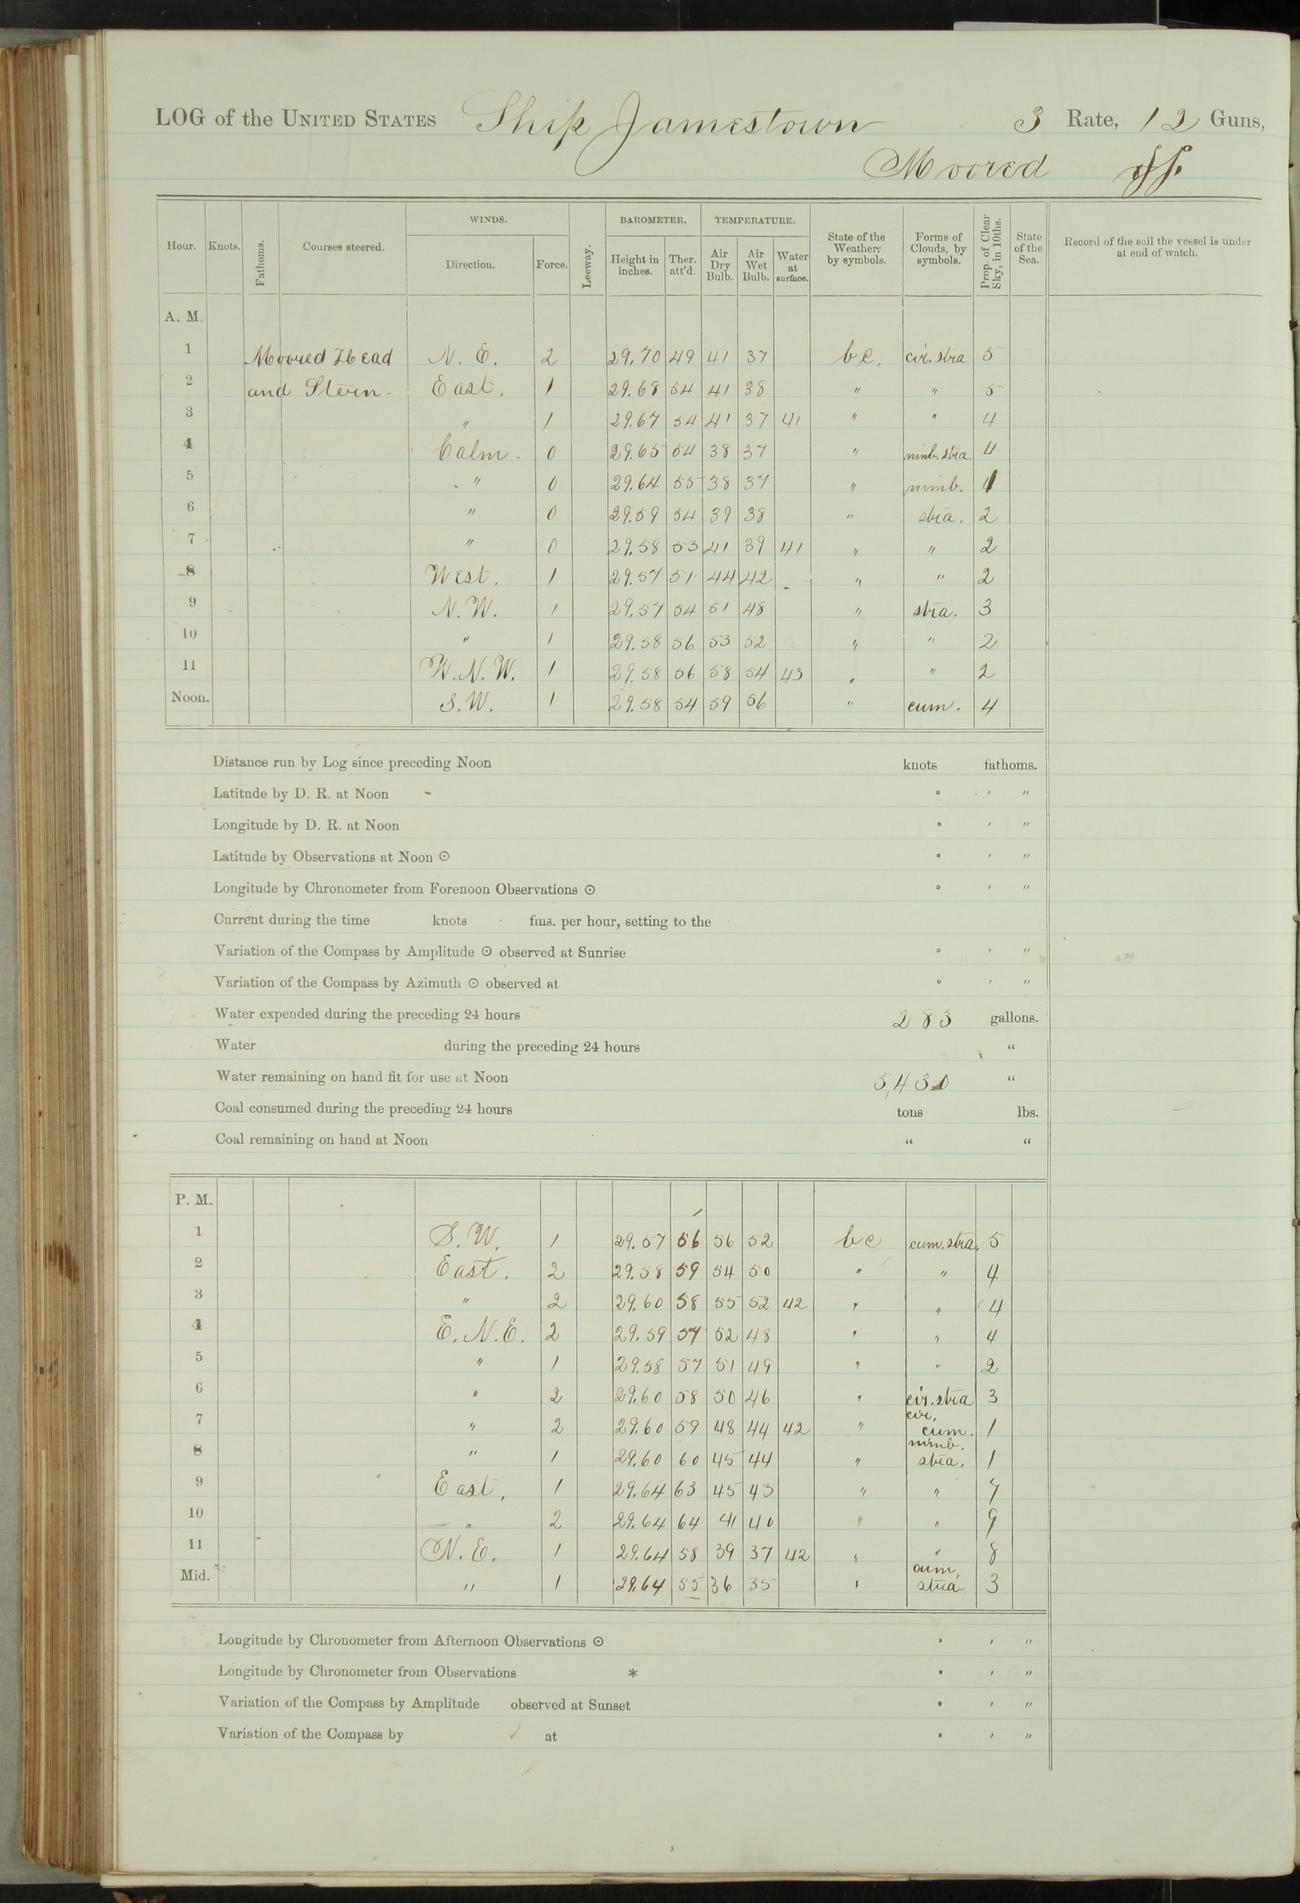 LOG of the UNITED STATES Ship Jamestown 3 Rate, 12 Guns,
Moored off
Hour. Knots. Fathoms. Courses steered. WINDS. Direction. Force. Leeway. BAROMETER. Height in inches. Ther. att'd. TEMPERATURE. Air Dry Bulb. Air Wet Bulb. Water at surface. State of the Weather by symbols. Forms of Clouds, by symbols. Prop. of Clear Sky, in 10ths. State of the Sea. Record of the sail the vessel is under at end of watch.
A. M.
1 Moored Head N. E. 2 29.70 49 41 37 bc. cir. stra 5
2 and Stern East. 1 29.68 54 41 38 " " 5
3 " 1 29.67 54 41 37 41 " " 4
4 Calm. 0 29.65 54 38 37 " nimb. stra. 4
5 " 0 29.64 55 38 37 " nimb. 1
6 " 0 29.59 54 39 38 " stra. 2
7 " 0 29.58 53 41 39 41 " " 2
8 West. 1 29.57 51 44 42 " " 2
9 N. W. 1 29.57 54 51 48 " stra. 3
10 " 1 29.58 56 53 52 " " 2
11 W. N. W. 1 29.58 56 58 54 43 " " 2
Noon. S. W. 1 29.58 54 59 56 " cum. 4
Distance run by Log since preceding Noon knots fathoms.
Latitude by D. R. at Noon ° ′ ″
Longitude by D. R. at Noon ° ′ ″
Latitude by Observations at Noon ⊙ ° ′ ″
Longitude by Chronometer from Forenoon Observations ⊙ ° ′ ″
Current during the time knots fms. per hour, setting to the
Variation of the Compass by Amplitude ⊙ observed at Sunrise ° ′ ″
Variation of the Compass by Azimuth ⊙ observed at ° ′ ″
Water expended during the preceding 24 hours 283 gallons.
Water during the preceding 24 hours “
Water remaining on hand fit for use at Noon 5,430 “
Coal consumed during the preceding 24 hours tons lbs.
Coal remaining on hand at Noon “ “
P. M.
1 S. W. 1 29.57 56 56 52 bc cum. stra. 5
2 East. 2 29.58 59 54 50 " " 4
3 " 2 29.60 58 55 52 42 " " 4
4 E. N. E. 2 29.59 57 52 48 " " 4
5 " 1 29.58 57 51 49 " " 2
6 " 2 29.60 58 50 46 " cir. stra 3
7 " 2 29.60 59 48 44 42 " cir. cum. 1
8 " 1 29.60 60 45 44 " nimb. stra. 1
9 East. 1 29.64 63 45 43 " " 7
10 " 2 29.64 64 41 40 " " 9
11 N. E. 1 29.64 58 39 37 42 " " 8
Mid. " 1 29.64 55 36 35 " cum. stra 3
Longitude by Chronometer from Afternoon Observations ⊙ ° ′ ″
Longitude by Chronometer from Observations * ° ′ ″
Variation of the Compass by Amplitude observed at Sunset ° ′ ″
Variation of the Compass by at ° ′ ″